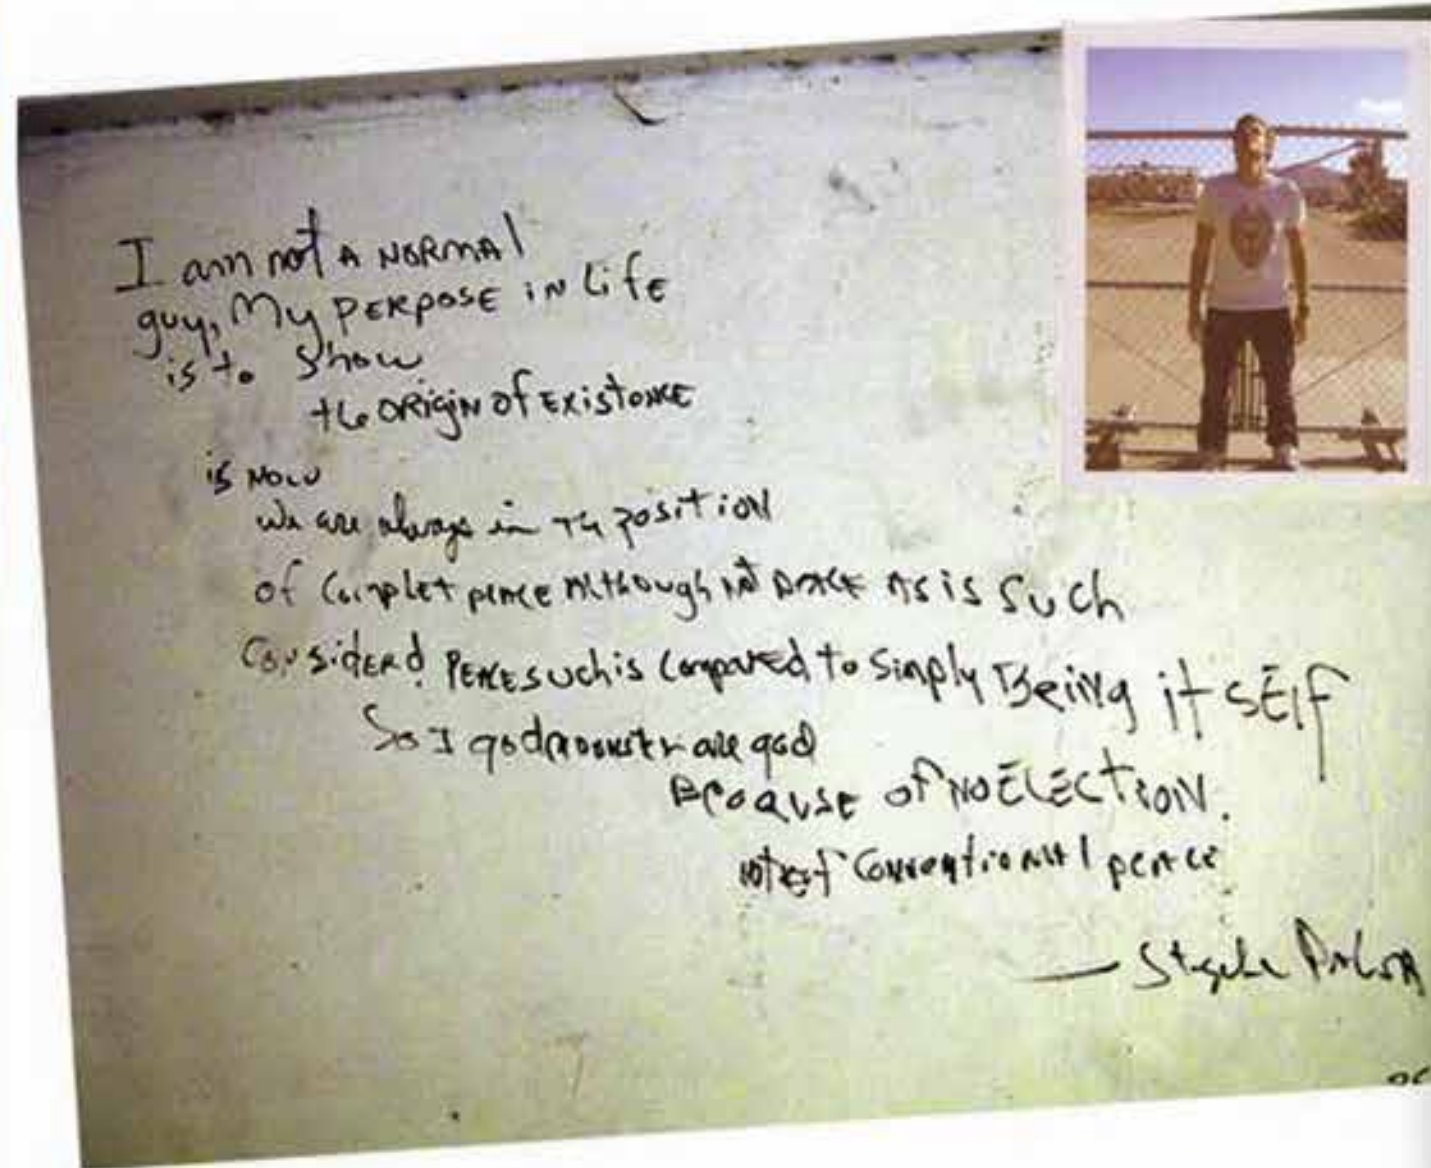 I am not A NORMAl
guy, My PERPOSE iN Life
is to Show
the ORigiN of EXisTONCE
is NOW
We are always in position
of Complet peace Although not as is Such
ConsiderD Peace such is Compared to Simply Being it SElf
So I god are god
Because of NO ElECTiON.
Conventional peace